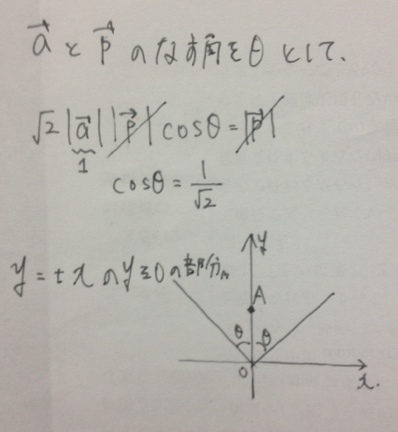 a⃗ と p⃗ のなす角を θ として、
√2 |a⃗| |p⃗| cosθ = |p⃗|
1
cosθ = 1/√2
y = ±x の y≧0 の部分
y
A
θ θ
O
x